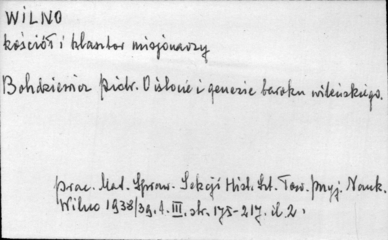 WILNO
kościół i klasztor misjonarzy
Bohdziewicz Piotr. O istocie i genezie baroku wileńskiego.
Prac. Mat. Spraw. Sekcji Hist. Szt. Tow. Przyj. Nauk.
Wilno 1938/39. t. III. str. 175-217. il 2.